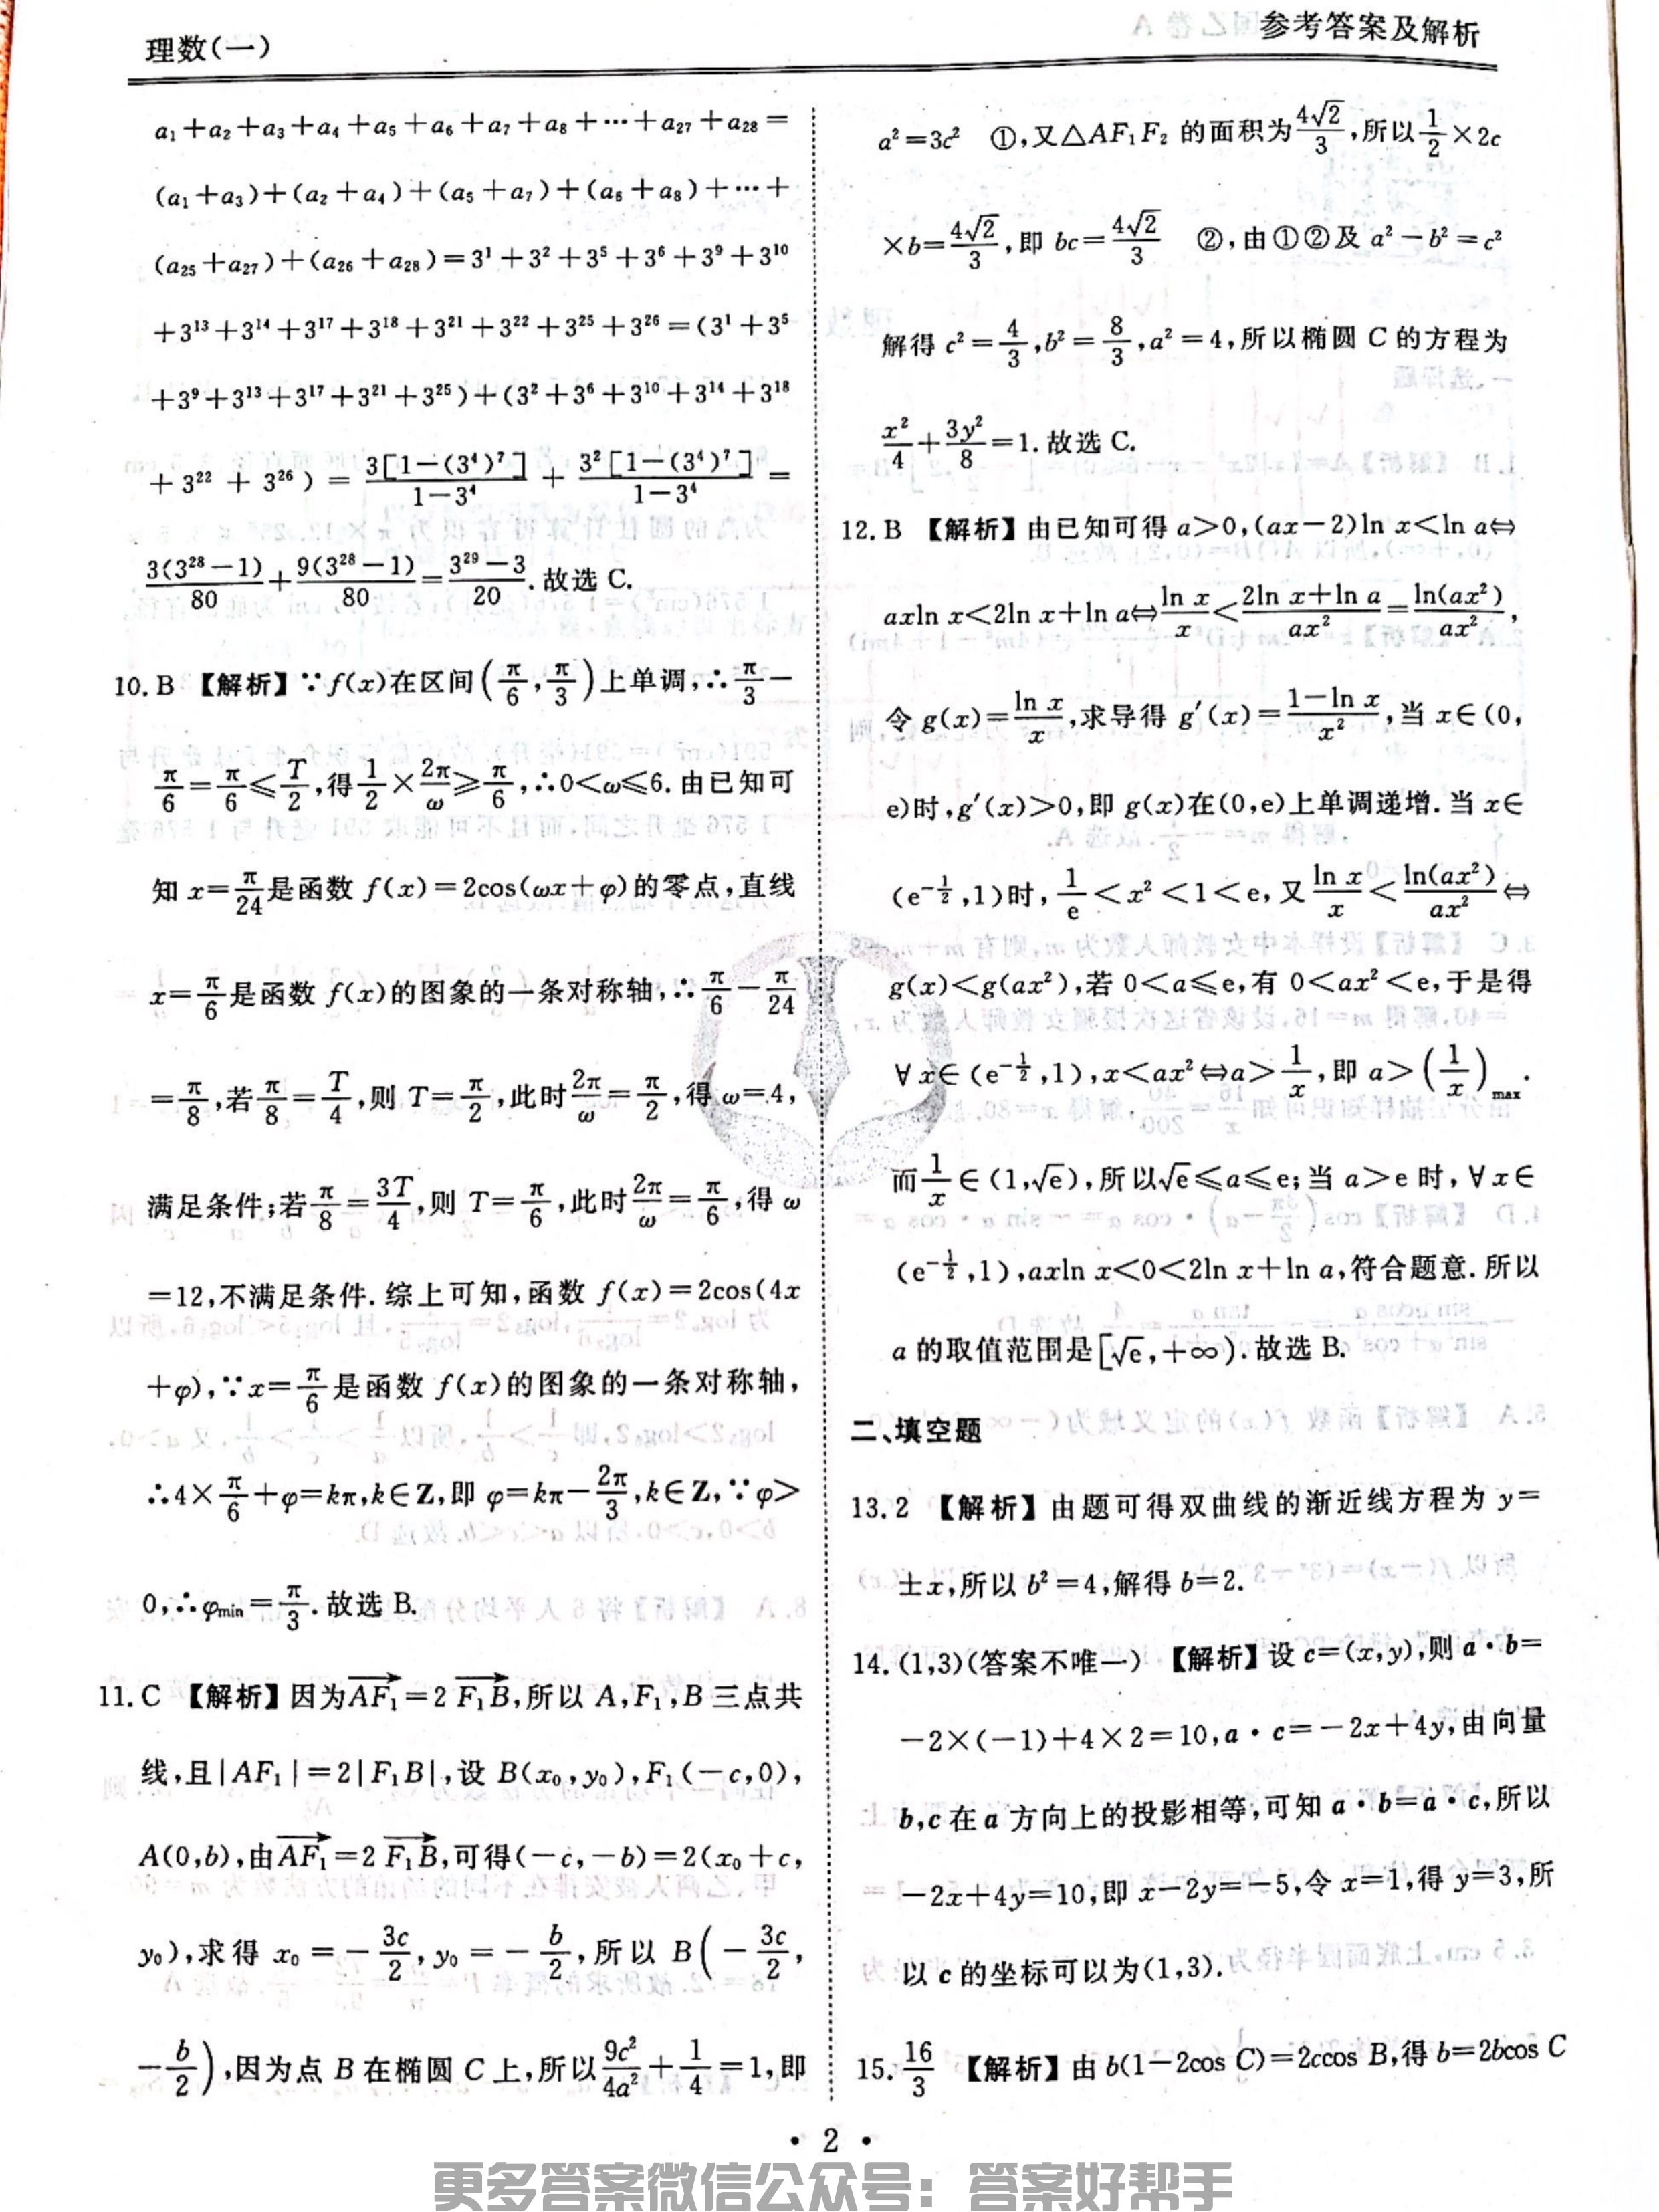 理数(一)
参考答案及解析
a₁+a₂+a₃+a₄+a₅+a₆+a₇+a₈+…+a₂₇+a₂₈=
(a₁+a₃)+(a₂+a₄)+(a₅+a₇)+(a₆+a₈)+…+
(a₂₅+a₂₇)+(a₂₆+a₂₈)=3¹+3²+3⁵+3⁶+3⁹+3¹⁰
+3¹³+3¹⁴+3¹⁷+3¹⁸+3²¹+3²²+3²⁵+3²⁶=(3¹+3⁵
+3⁹+3¹³+3¹⁷+3²¹+3²⁵)+(3²+3⁶+3¹⁰+3¹⁴+3¹⁸
+3²²+3²⁶)=3[1-(3⁴)⁷]/(1-3⁴)+3²[1-(3⁴)⁷]/(1-3⁴)=
3(3²⁸-1)/80+9(3²⁸-1)/80=(3²⁹-3)/20.故选 C.
10.B 【解析】∵f(x)在区间(π/6,π/3)上单调,∴π/3-
π/6=π/6≤T/2,得1/2×2π/ω≥π/6,∴0<ω≤6.由已知可
知 x=π/24是函数 f(x)=2cos(ωx+φ)的零点,直线
x=π/6是函数 f(x)的图象的一条对称轴,∴π/6-π/24
=π/8,若π/8=T/4,则 T=π/2,此时2π/ω=π/2,得 ω=4,
满足条件;若π/8=3T/4,则 T=π/6,此时2π/ω=π/6,得 ω
=12,不满足条件.综上可知,函数 f(x)=2cos(4x
+φ),∵x=π/6是函数 f(x)的图象的一条对称轴,
∴4×π/6+φ=kπ,k∈Z,即 φ=kπ-2π/3,k∈Z,∵φ>
0,∴φmin=π/3.故选 B.
11.C 【解析】因为AF₁→=2F₁B→,所以 A,F₁,B 三点共
线,且|AF₁|=2|F₁B|,设 B(x₀,y₀),F₁(-c,0),
A(0,b),由AF₁→=2F₁B→,可得(-c,-b)=2(x₀+c,
y₀),求得 x₀=-3c/2,y₀=-b/2,所以 B(-3c/2,
-b/2),因为点 B 在椭圆 C 上,所以9c²/4a²+1/4=1,即
a²=3c² ①,又△AF₁F₂ 的面积为4√2/3,所以1/2×2c
×b=4√2/3,即 bc=4√2/3 ②,由①②及 a²-b²=c²
解得 c²=4/3,b²=8/3,a²=4,所以椭圆 C 的方程为
x²/4+3y²/8=1.故选 C.
12.B 【解析】由已知可得 a>0,(ax-2)ln x<ln a⇔
axln x<2ln x+ln a⇔ln x/x<(2ln x+ln a)/ax²=ln(ax²)/ax²,
令 g(x)=ln x/x,求导得 g′(x)=(1-ln x)/x²,当 x∈(0,
e)时,g′(x)>0,即 g(x)在(0,e)上单调递增.当 x∈
(e^(-1/2),1)时,1/e<x²<1<e,又ln x/x<ln(ax²)/ax²⇔
g(x)<g(ax²),若 0<a≤e,有 0<ax²<e,于是得
∀x∈(e^(-1/2),1),x<ax²⇔a>1/x,即 a>(1/x)max.
而1/x∈(1,√e),所以√e≤a≤e;当 a>e 时,∀x∈
(e^(-1/2),1),axln x<0<2ln x+ln a,符合题意.所以
a 的取值范围是[√e,+∞).故选 B.
二、填空题
13.2 【解析】由题可得双曲线的渐近线方程为 y=
±x,所以 b²=4,解得 b=2.
14.(1,3)(答案不唯一) 【解析】设 c=(x,y),则 a·b=
-2×(-1)+4×2=10,a·c=-2x+4y,由向量
b,c 在 a 方向上的投影相等,可知 a·b=a·c,所以
-2x+4y=10,即 x-2y=-5,令 x=1,得 y=3,所
以 c 的坐标可以为(1,3).
15.16/3 【解析】由 b(1-2cos C)=2ccos B,得 b=2bcos C
·2·
更多答案微信公众号：答案好帮手